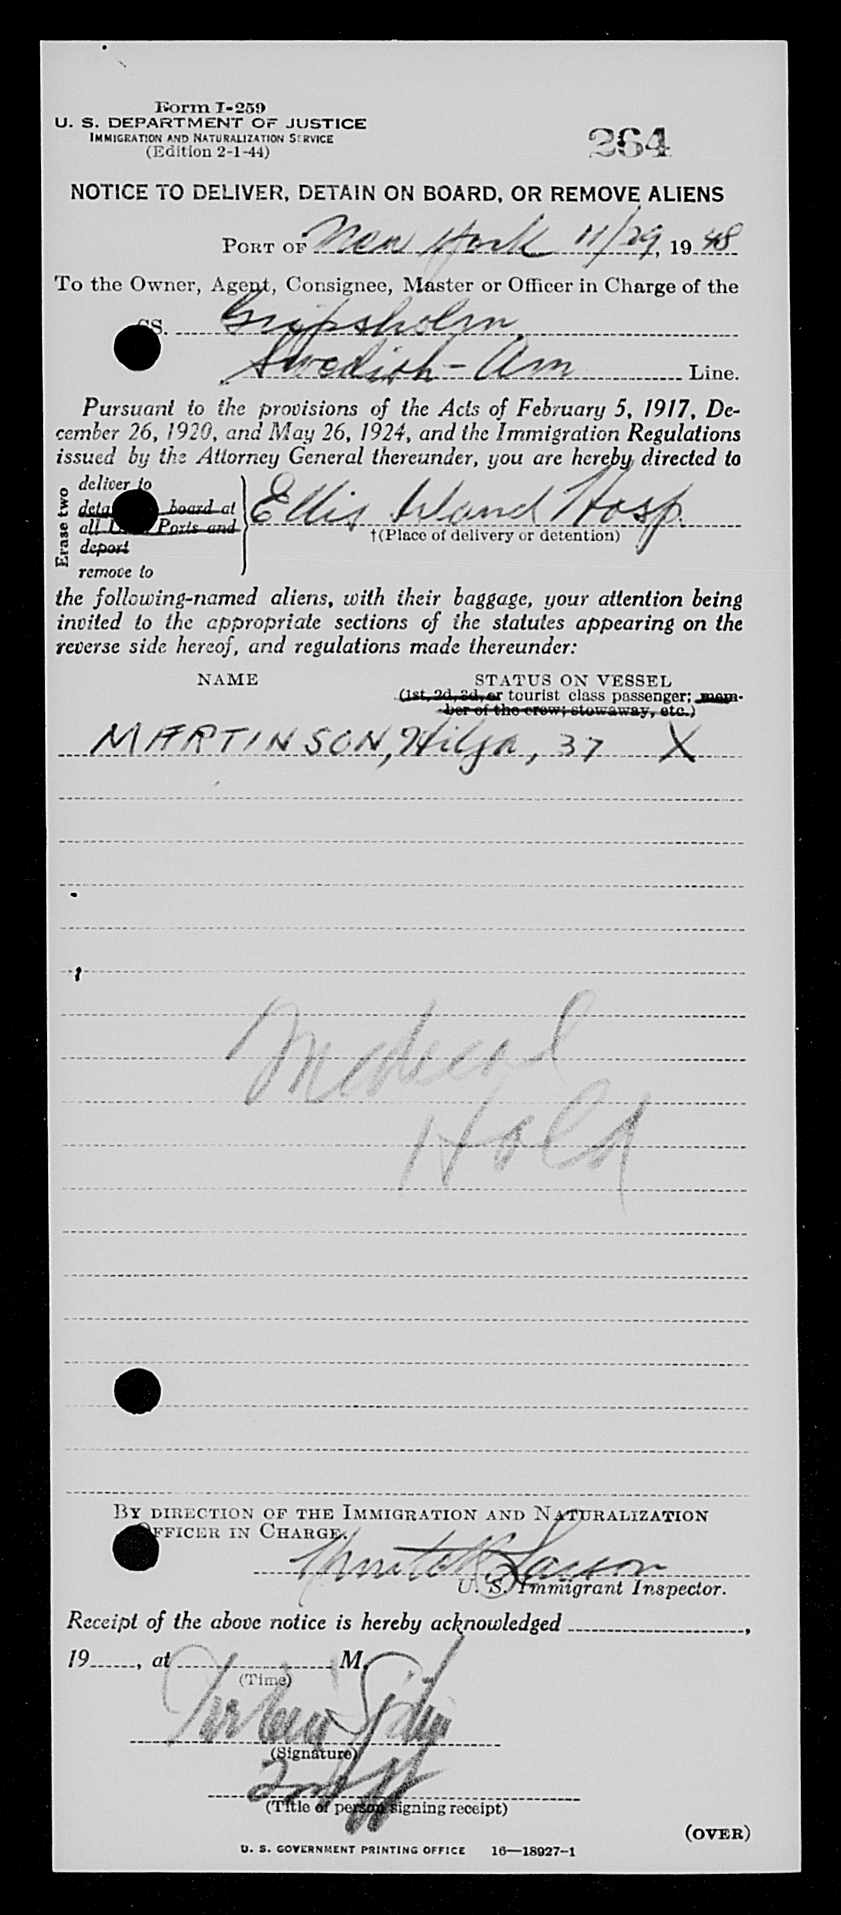 Form I-259
U. S. DEPARTMENT OF JUSTICE
IMMIGRATION AND NATURALIZATION SERVICE
(Edition 2-1-44)
264
NOTICE TO DELIVER, DETAIN ON BOARD, OR REMOVE ALIENS
PORT OF New York 11/29, 1948
To the Owner, Agent, Consignee, Master or Officer in Charge of the
SS. Gripsholm
Swedish-Am Line.
Pursuant to the provisions of the Acts of February 5, 1917, De-
cember 26, 1920, and May 26, 1924, and the Immigration Regulations
issued by the Attorney General thereunder, you are hereby directed to
Erase two
deliver to
board at
all Ports and
deport
remove to
Ellis Island Hosp.
†(Place of delivery or detention)
the following-named aliens, with their baggage, your attention being
invited to the appropriate sections of the statutes appearing on the
reverse side hereof, and regulations made thereunder:
NAME STATUS ON VESSEL
(1st, 2d, 3d, or tourist class passenger; mem-
ber of the crew; stowaway, etc.)
MARTINSON, Hilja, 37 X
Medical
Hold
BY DIRECTION OF THE IMMIGRATION AND NATURALIZATION
OFFICER IN CHARGE.
U. S. Immigrant Inspector.
Receipt of the above notice is hereby acknowledged ,
19 , at M.
(Time)
(Signature)
2nd
(Title of person signing receipt)
(OVER)
U. S. GOVERNMENT PRINTING OFFICE 16—18927-1